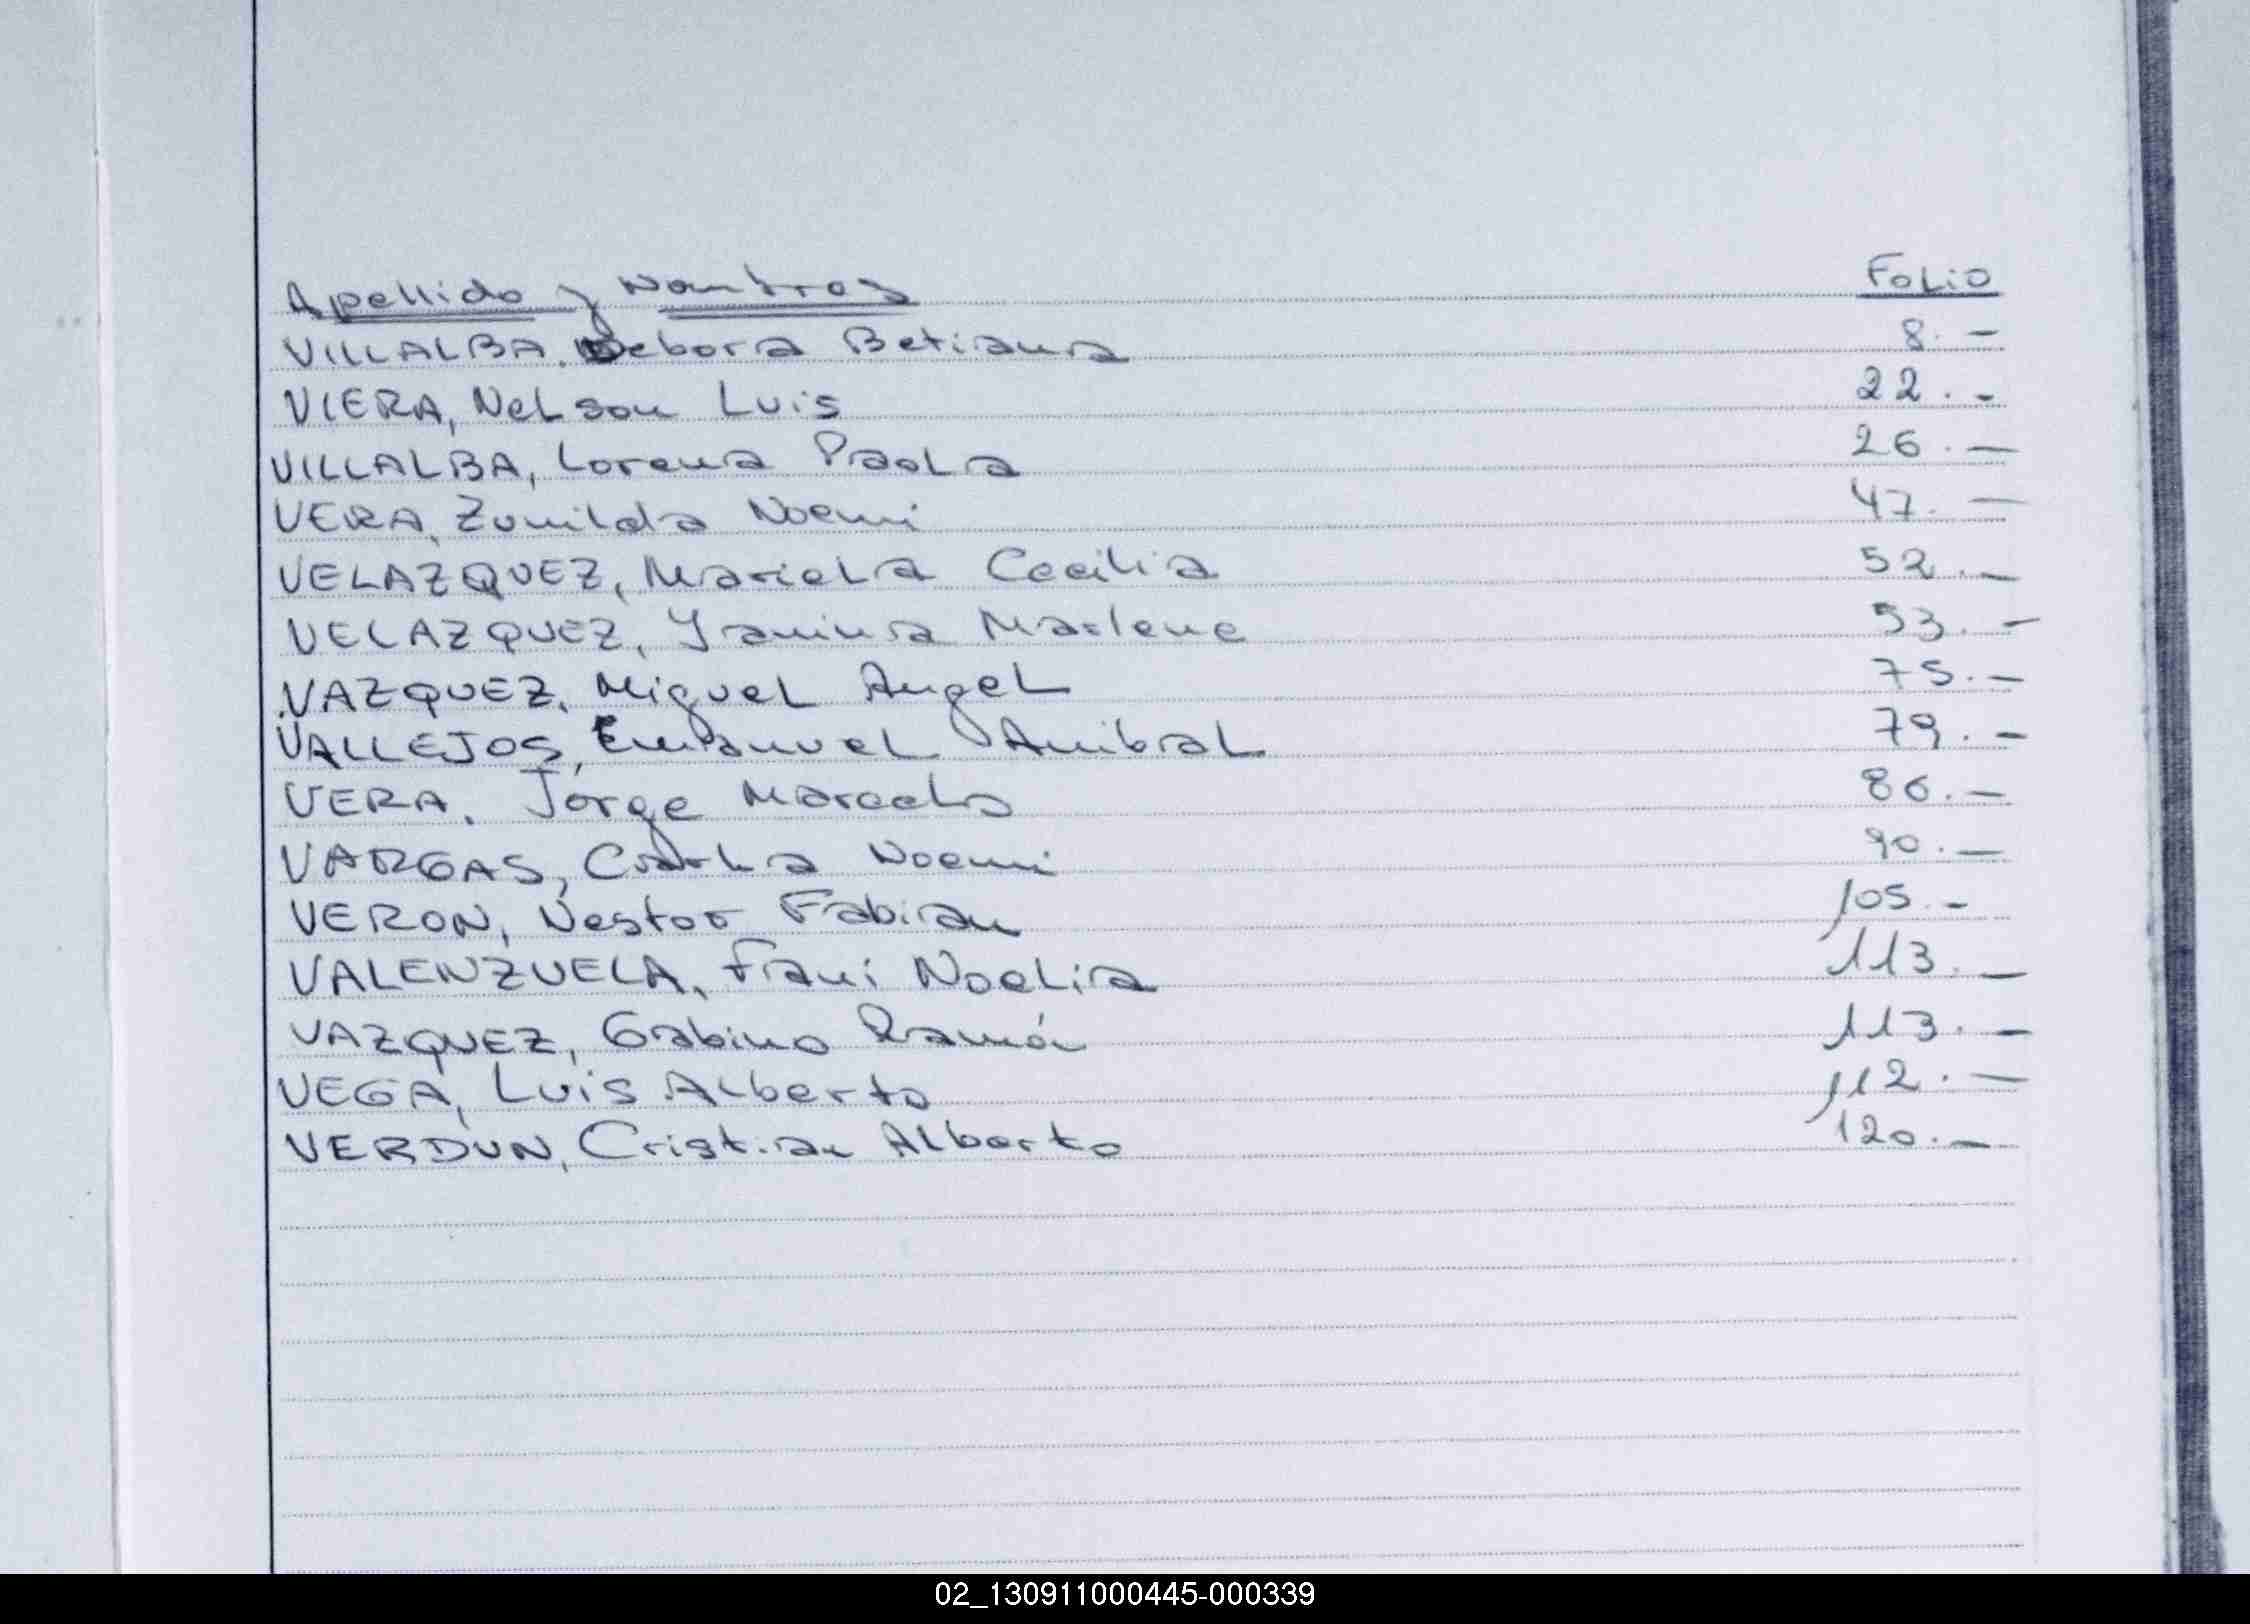 Apellido y Nombres Folio
VILLALBA, Debora Betiana 8.-
VIERA, Nelson Luis 22.-
VILLALBA, Lorena Paola 26.-
VERA, Zunilda Noemi 47.-
VELAZQUEZ, Mariela Cecilia 52.-
VELAZQUEZ, Yanina Marlene 53.-
VAZQUEZ, Miguel Angel 75.-
VALLEJOS, Emanuel Anibal 79.-
VERA, Jorge Marcelo 86.-
VARGAS, Carla Noemi 90.-
VERON, Nestor Fabian 105.-
VALENZUELA, Fani Noelia 113.-
VAZQUEZ, Gabino Ramón 113.-
VEGA, Luis Alberto 112.-
VERDUN, Cristian Alberto 120.-
02_130911000445-000339